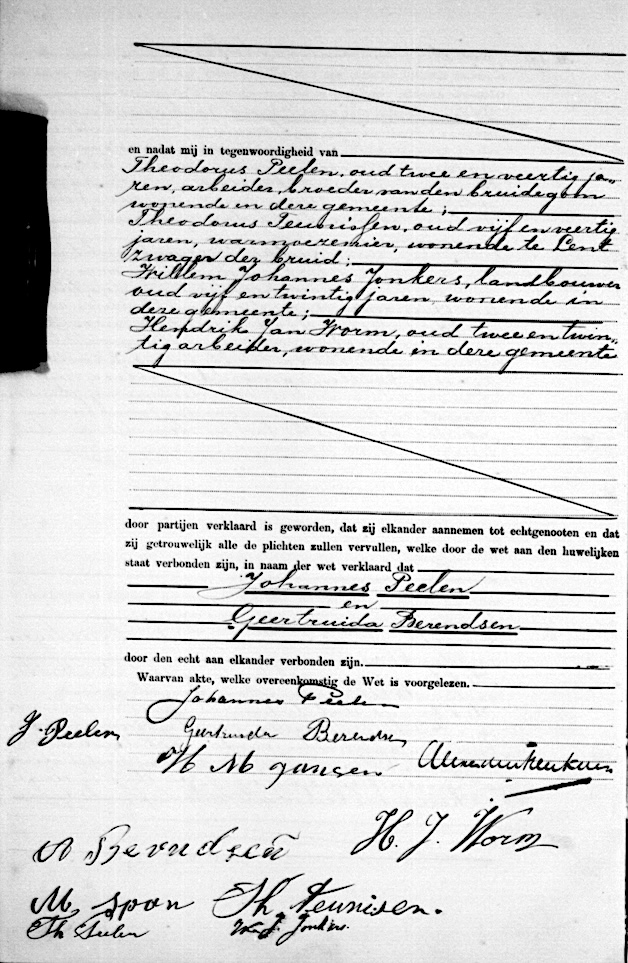 en nadat mij in tegenwoordigheid van
Theodorus Peelen, oud twee en veertig ja„
ren, arbeider, broeder van den bruidegom
wonende in deze gemeente;
Theodorus Teunissen, oud vijf en veertig
jaren, warmoezenier, wonende te Lent
zwager der bruid;
Willem Johannes Jonkers, landbouwer
oud vijf en twintig jaren, wonende in
deze gemeente;
Hendrik Jan Worm, oud twee en twin„
tig arbeider, wonende in deze gemeente
door partijen verklaard is geworden, dat zij elkander aannemen tot echtgenooten en dat
zij getrouwelijk alle de plichten zullen vervullen, welke door de wet aan den huwelijken
staat verbonden zijn, in naam der wet verklaard dat
Johannes Peelen
en
Geertruida Berendsen
door den echt aan elkander verbonden zijn.
Waarvan akte, welke overeenkomstig de Wet is voorgelezen.
Johannes Peelen
J. Peelen
Geertruida Berendsen
H M Jansen
H. J. Worm
M. Span
Th. Teunisen.
Th Peelen
W. J. Jonkers.